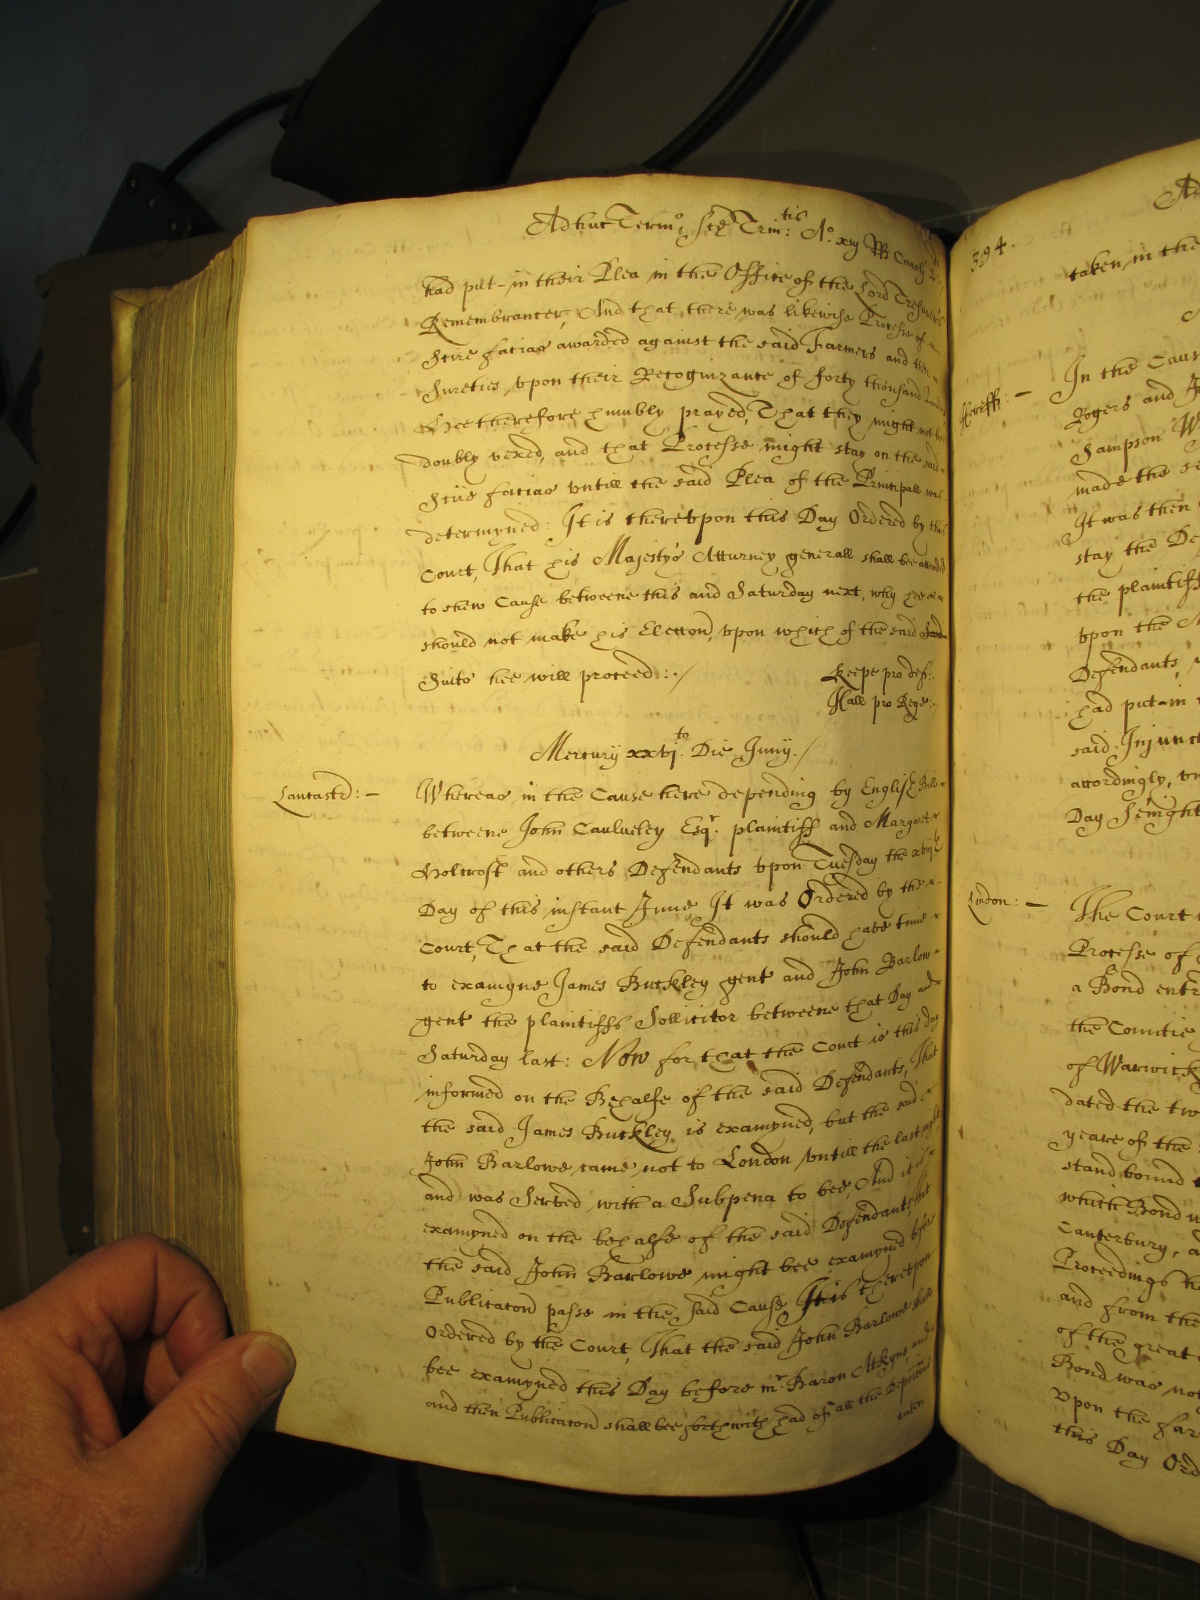 Adhuc Termi: sce Trin:tis Ao. xiij RRs Caroli 2i
had put-in their Plea in the Office of the Lord Trẽurers
Remembrancer, And that there was likewise Processe of
Scire facias awarded against the said Farmers and their
Sureties, vpon their Recognizance of forty thousand
Hee therefore humbly prayed, That they might not bee
doubly vexed, and that Processe might stay on the said
Scire facias vntill the said Plea of the Principall was
determyned: It is therevpon this Day Ordered by this
Court, That his Majestys Atturney generall shall bee attended
to shew Cause betweene this and Saturday next, why hee
should not make his Eleccon, vpon which of the said
Suits hee will proceed :./
Keepe pro def:
Hall pro Rege:
Mercurij xxvjto. Die Junij./
Lancastr: -
Whereas in the Cause here depending by English Bill
betweene John Caulveley Esqr. plaintiff and Margarett
Holcroft and others Defendants vpon Tuesday the xviijth
Day of this instant June It was Ordered by the
Court, That the said Defendants should have time
to examyne James Buckley gent and John Barlow
gent the plaintiffs Sollicitor betweene that Day and
Saturday last: Now for that the Court is this day
informed on the Behalfe of the said Defendants, That
the said James Buckley is examyned, but the said
John Barlowe came not to London vntill the last night
and was Served with a Subpena to bee, And it is
examyned on the behalfe of the said Defendants, that
the said John Barlowe might bee examyned before
Publicacon passe in the said Cause It is therevpon
Ordered by the Court, That the said John Barlowe shall
bee examyned this Day before mr. Baron Atkyns, and
and then Publicacon shall bee forthwith had of all the Deposicons
taken
394.
taken in the
Hereff: -
In the Caus
Rogers and J
Sampson W
made the se
It was then
stay the De
the plaintiff
vpon the M
Defendants,
had put-in
said Injunct
accordingly, vn
Day Senight
London: -
The Court
Processe of
a Bond entr
the Countie
of Warwick
dated the tw
yeare of the
stand bound
which Bond w
Canterbury, a
Proceedings h
and from the
of the great
Bond was not
Vpon the far
this Day Ord